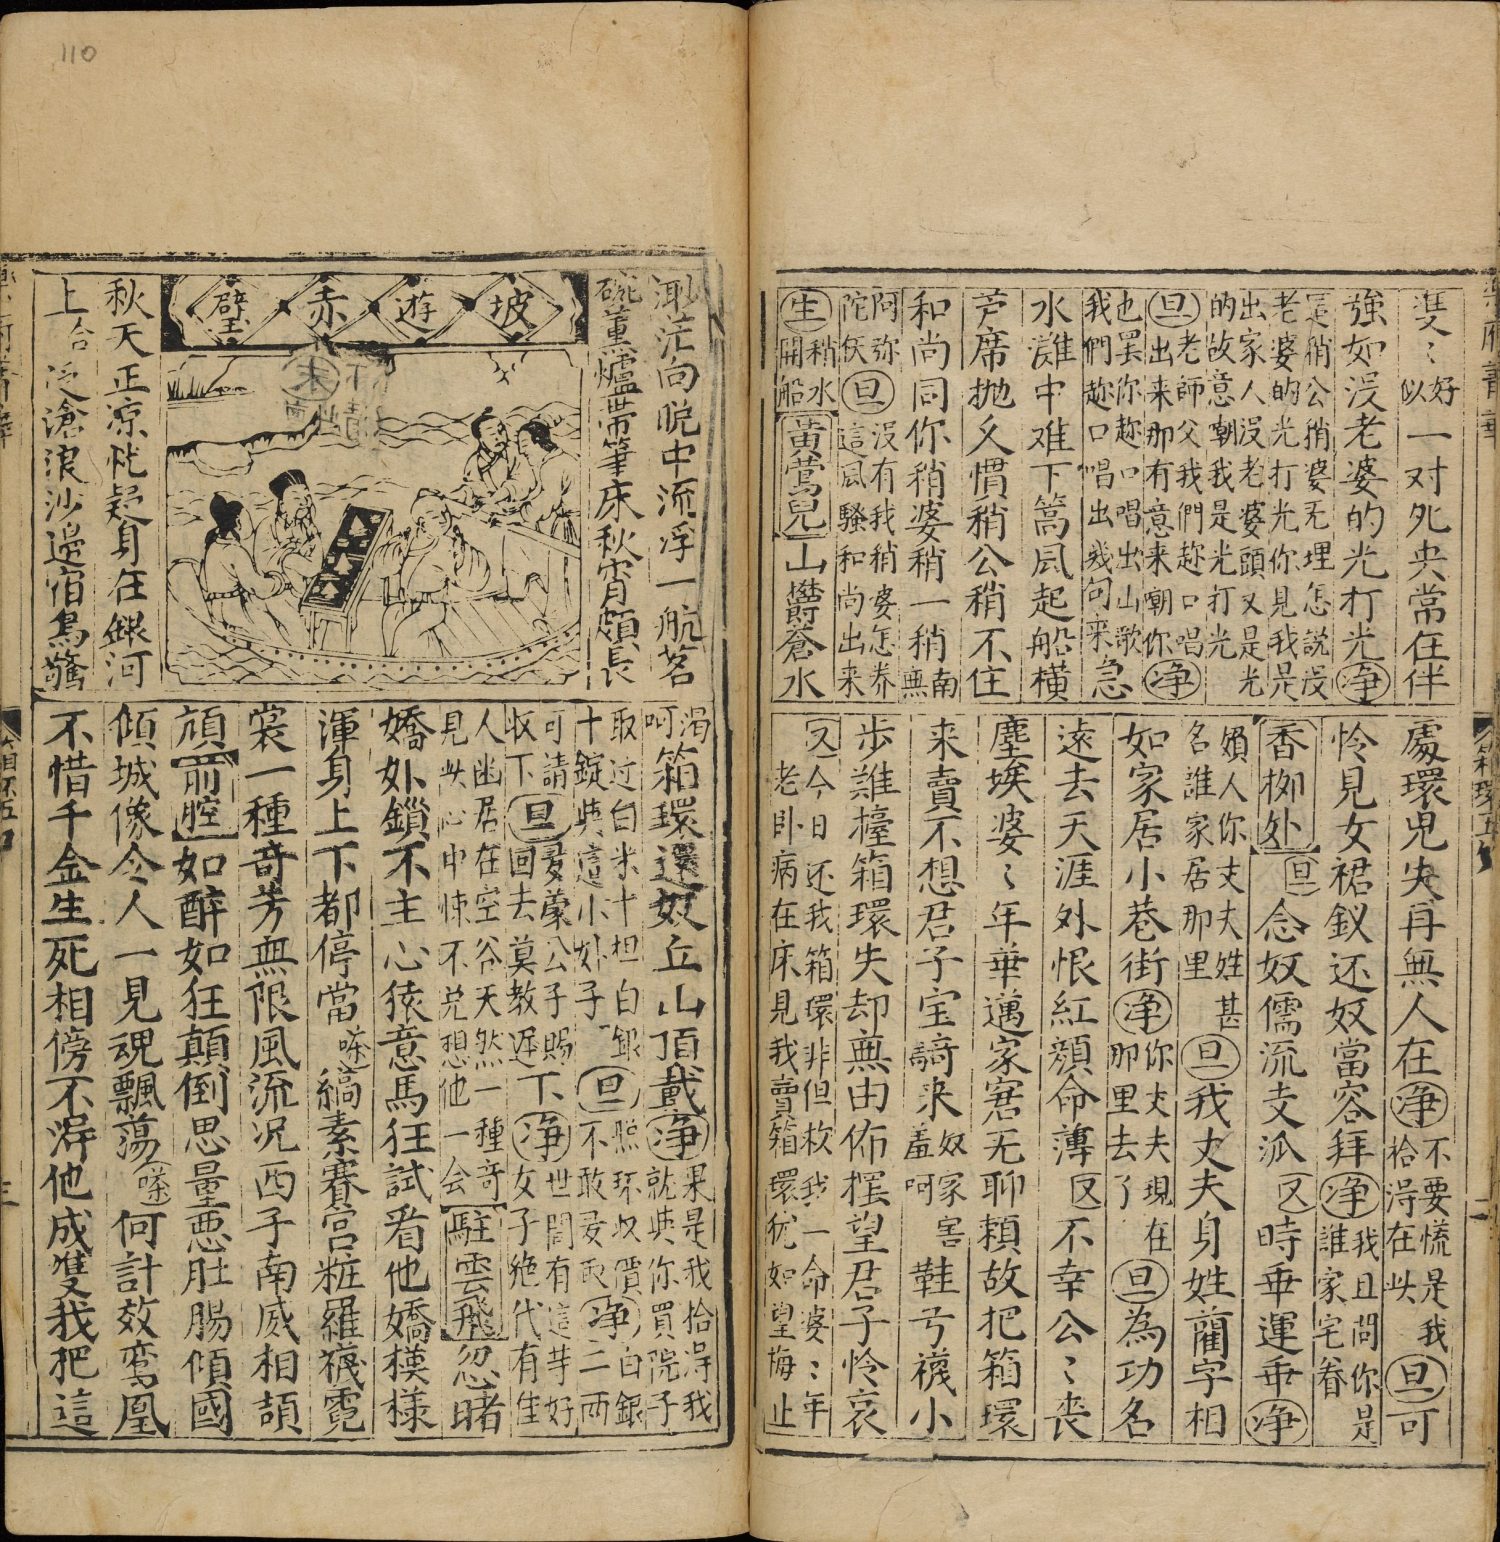 雙〻好似一对死央常在伴
強如没老婆的光打光净
這稍公稍婆无埋怎説没
老婆的光打光你見我是
出家人没老婆頭又是光
的故意嘲我是光打光
旦老師父我們趂口唱
出来那有意来嘲你净
也罢你趂口唱出山歌
我們趂口唱出幾句來急
水灘中难下篙凨起船橫
芦席抛乂慣稍公稍不住
和尚同你稍婆稍一稍南無
阿弥陀佛旦没有我稍婆怎养
這風騷和尚出来
生稍水開船黄鶯兒山欝蒼水
處環兒失再無人在净不要慌是我拾淂在此旦可
怜見女裙釵还奴當容拜净我且問你是誰家宅眷
香柳処旦念奴儒流支派又時乖運乖净
嬪人你丈夫姓甚
名誰家居那里旦我丈夫身姓藺字相
如家居小巷街净你丈夫現在那里去了旦為功名
遠去天涯外恨紅顔命薄又不幸公〻丧
塵埃婆〻年華邁家窘无聊頼故把箱環
来賣不想君子宝騎来奴家害羞呵鞋弓襪小
步难擡箱環失却無由佈擺望君子怜哀
又今日还我箱環非但救我一命婆〻年
老卧病在床見我賣箱環犹如望梅止
渺茫向晚中流浮一航茗
碗薰爐帶筆床秋宵頗長
坡遊赤壁
秋天正凉恍疑身在銀河
上合泛滄浪沙邊宿鳥驚
渴呵箱環還奴丘山頂戴净果是我拾淂我就與你買院子
取过白米十担白銀
十錠與這小娘子旦照环収價白銀
不敢受取净二両
可請収下旦受蒙公子賜
回去莫教遲下净世間有這等好
女子絶代有佳
人幽居在空谷天然一種奇
見此心中悚不免想他一会駐雲飛忽睹
嬌娘鎖不主心猿意馬狂試看他嬌模様
渾身上下都停當嗏縞素賽宫粧羅襪霓
裳一種奇芳無限風流况西子南威相頡
頏前腔如醉如狂顛倒思量悪肚腸傾國
傾城像令人一見魂飄蕩嗏何計效鸞凰
不惜千金生死相傍不淂他成雙我把這